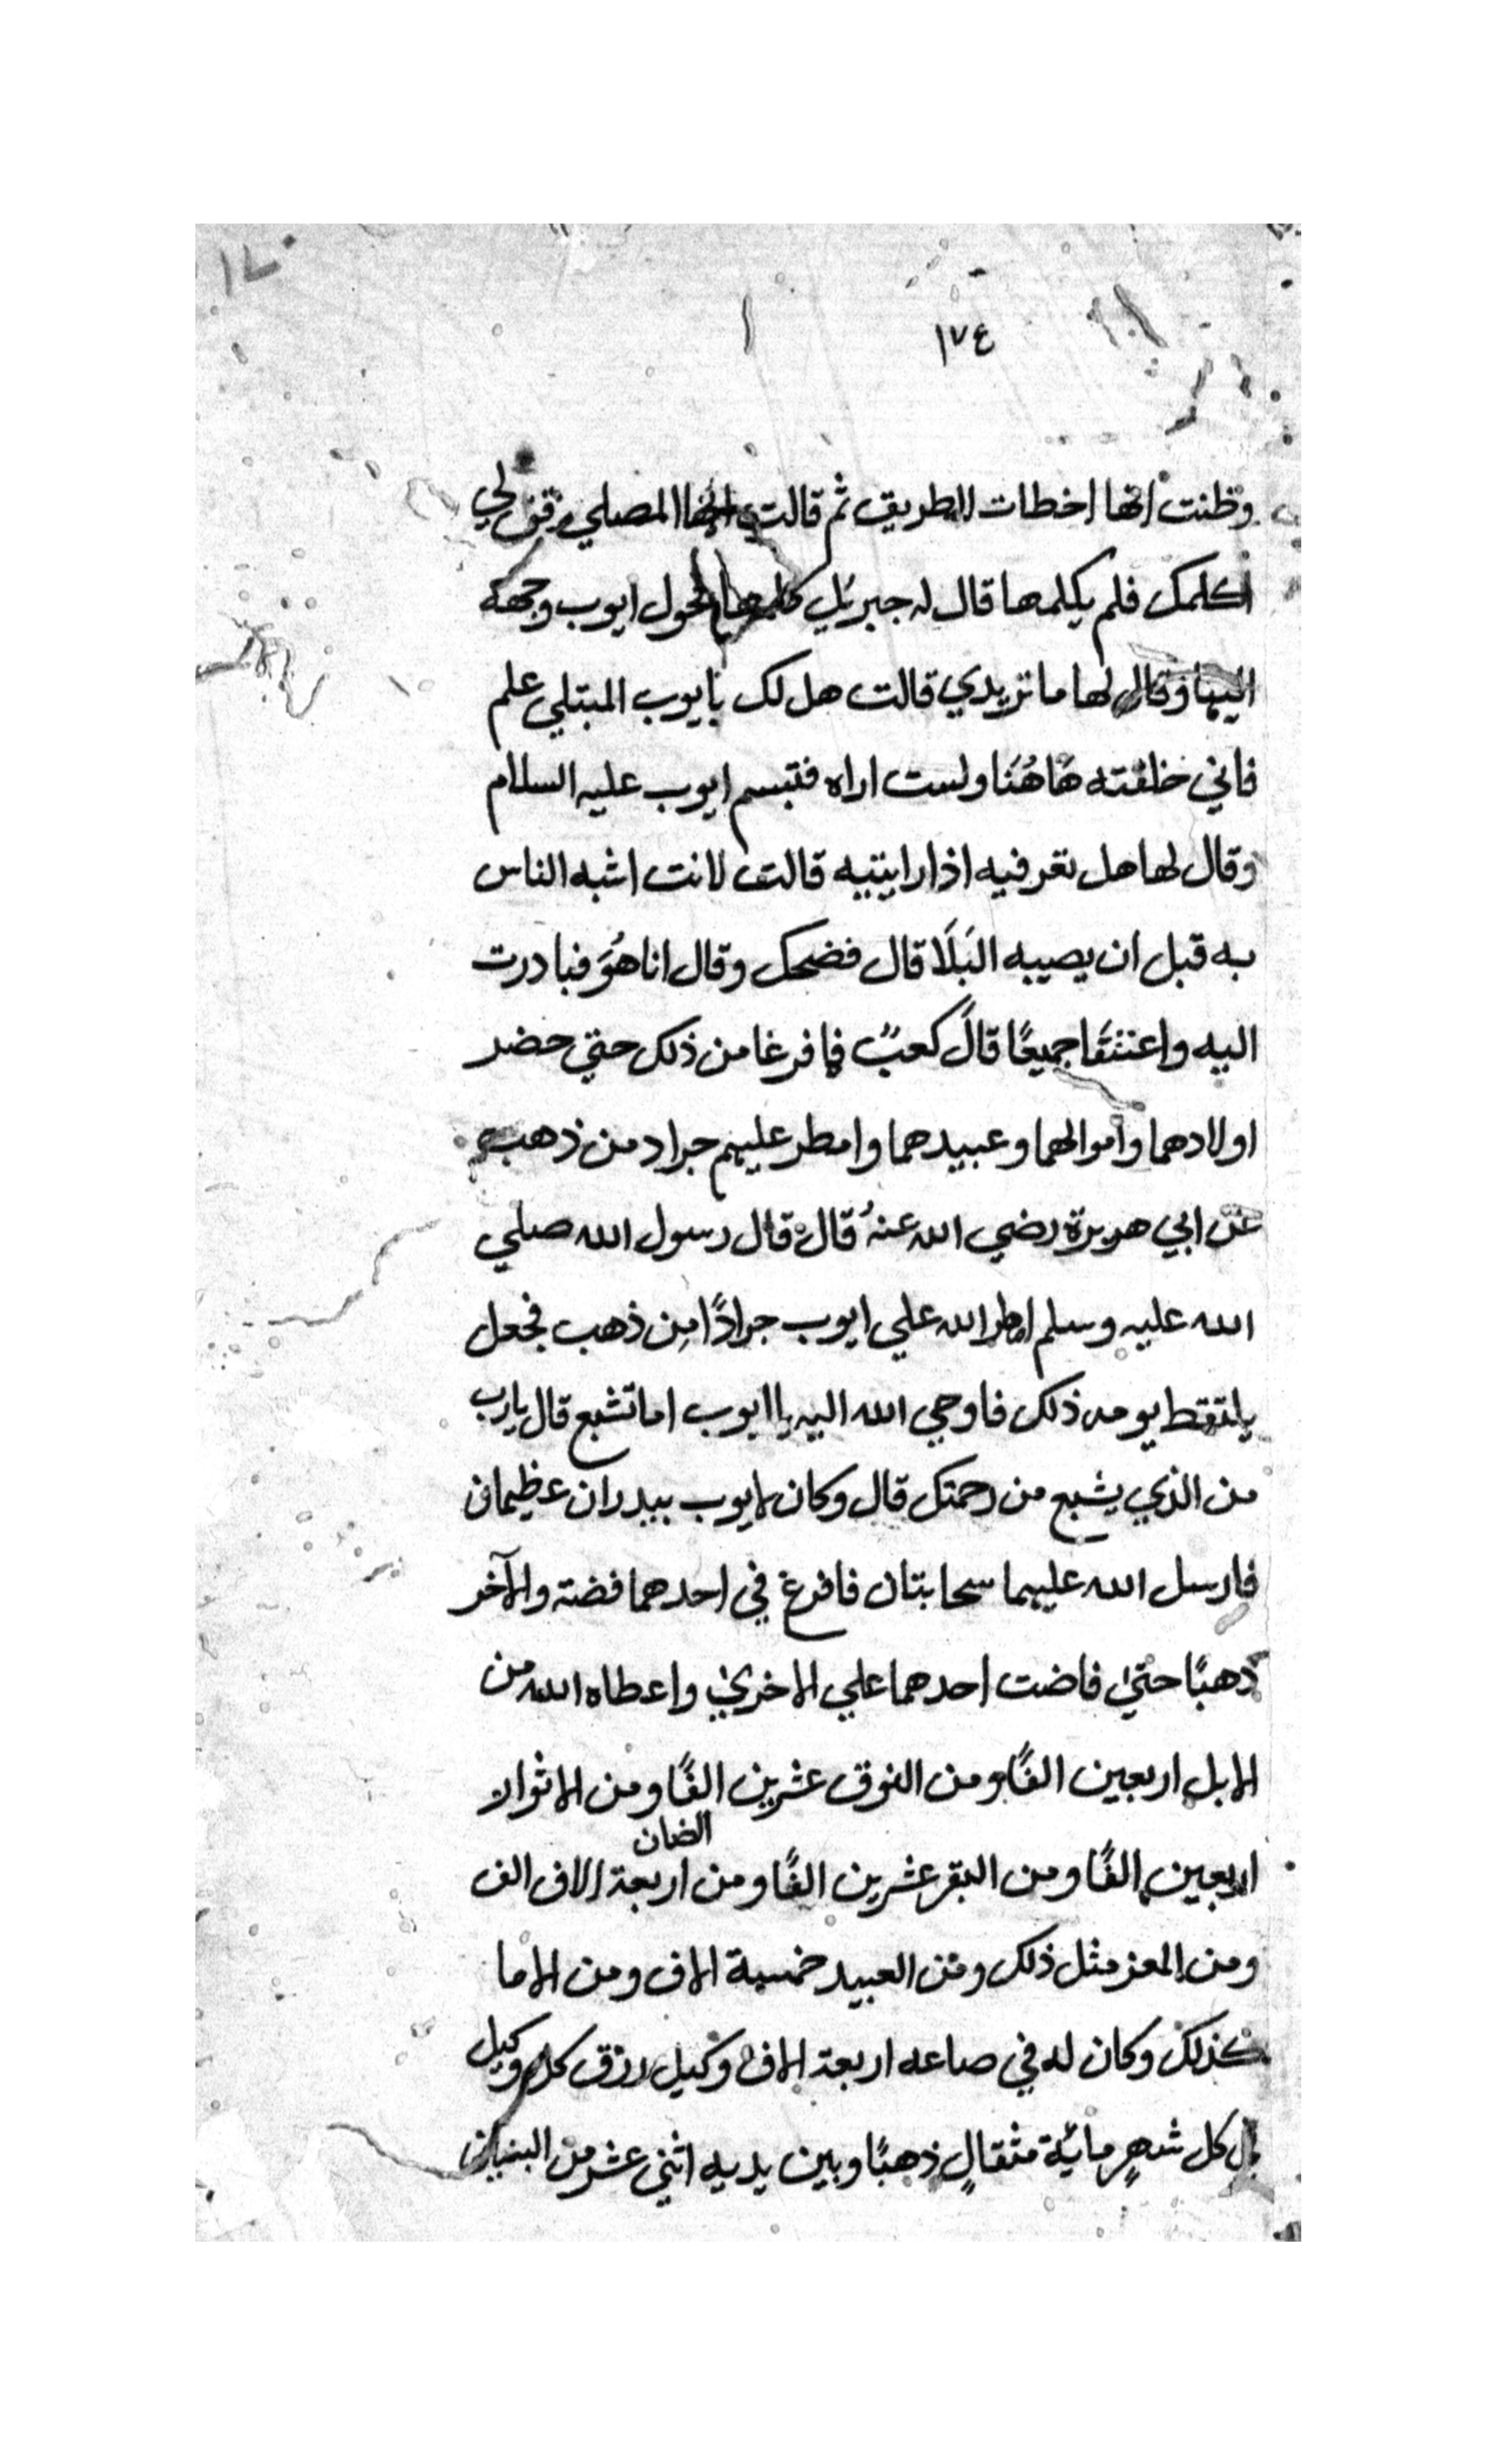 ١٧٤
وظنت انها اخطات الطريق ثم قالت ايها المصلي وقف لي
اكلمك فلم يكلمها قال له جبريل كلمها فحول ايوب وجهه
اليها وقال لها ما تريدي قالت هل لك بايوب المبتلي علم
فاني خلفته هَاهُنَا ولست اراه فتبسم ايوب عليه السلام
وقال لها هل تعرفيه اذا رايتيه قالت لانت اشبه الناس
به قبل ان يصيبه البَلَا قال فضحك وقال انا هُوَ فبادرت
اليه واعتنقَا جميعًا قالَ كعبٌ فما فرغا من ذلك حتي حضر
اولادهما واموالهما وعبيدهما وامطر عليهم جراد من ذهب
عن ابي هريرة رضي الله عنهُ قال قال رسول الله صلي
الله عليه وسلم امطر الله علي ايوب جرادًا مِن ذهب فجعل
يلتقط يومه ذلك فاوحي الله اليه يا ايوب اما تشبع قال يارب
من الذي يشبع من رحمتك قال وكان لايوب بيدران عظيمان
فارسل الله عليهما سحابتان فافرغ في احدهما فضة والآخر
ذهبًا حتي فاضت احدهما علي الاخري واعطاه الله من
الابل اربعين الفًا ومن النوق عشرين الفًا ومن الاثوار
الضان
اربعين الفًا ومن البقر عشرين الفًا ومن اربعة الاف الف
ومن المعز مثل ذلك ومن العبيد خمسة الاف ومن الاما
كذلك وكان له في صاعه اربعة الاف وكيل رزق كل وكيل
كل شهرٍ مائة مثقالٍ ذهبًا وبين يديه اثني عشر من البنين